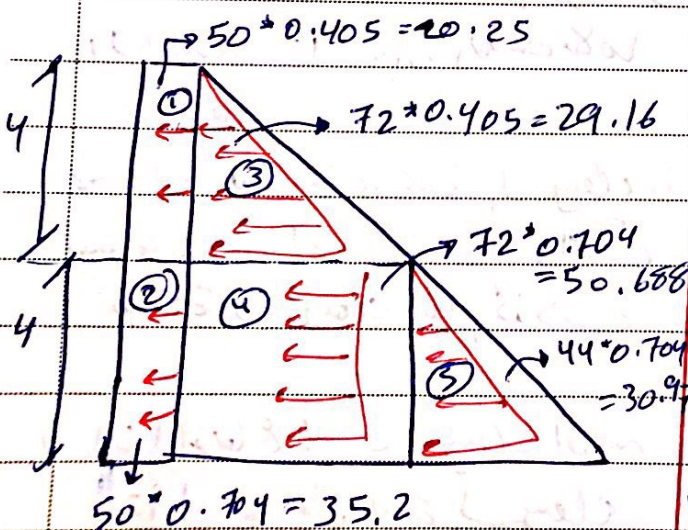 50*0.405=20.25
①
4
72*0.405=29.16
③
72*0.704
=50.688
②
④
4
44*0.704
=30.9
⑤
50*0.704=35.2